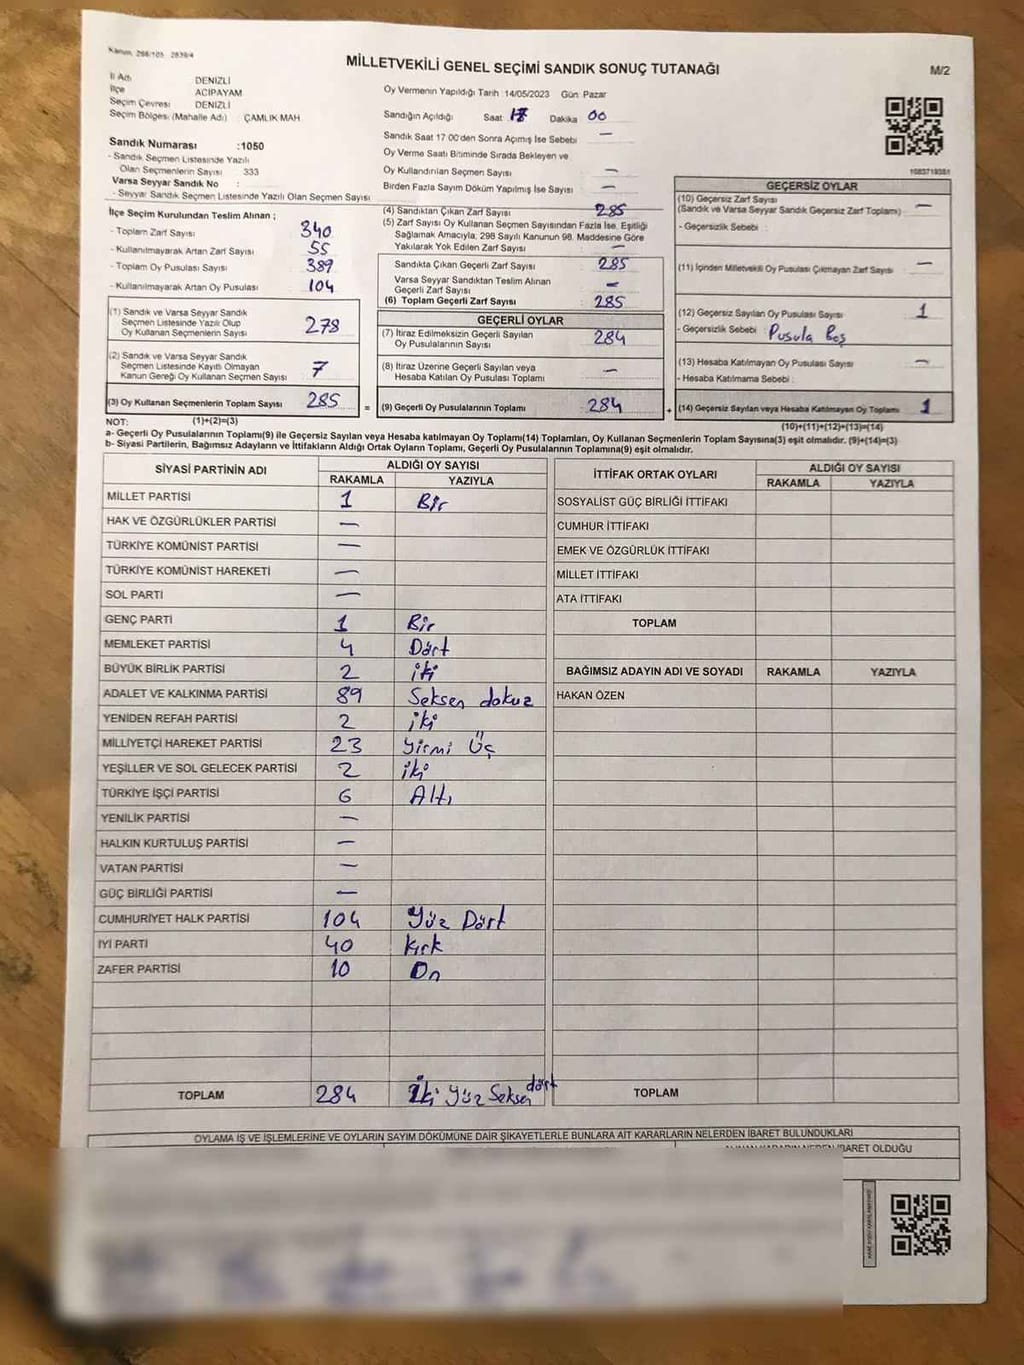 Kanun, 298/105 2839/4
MİLLETVEKİLİ GENEL SEÇİMİ SANDIK SONUÇ TUTANAĞI
M/2
İl Adı DENİZLİ
İlçe ACIPAYAM
Seçim Çevresi DENİZLİ
Seçim Bölgesi (Mahalle Adı) ÇAMLIK MAH
Sandık Numarası :1050
- Sandık Seçmen Listesinde Yazılı
Olan Seçmenlerin Sayısı 333
Varsa Seyyar Sandık No :
- Seyyar Sandık Seçmen Listesinde Yazılı Olan Seçmen Sayısı
Oy Vermenin Yapıldığı Tarih :14/05/2023 Gün Pazar
Sandığın Açıldığı Saat 17 Dakika 00
Sandık Saat 17 00'den Sonra Açımış İse Sebebi —
Oy Verme Saati Bitiminde Sırada Bekleyen ve
Oy Kullandırılan Seçmen Sayısı —
Birden Fazla Sayım Döküm Yapılmış İse Sayısı —
1083719381
İlçe Seçim Kurulundan Teslim Alınan ;
- Toplam Zarf Sayısı 340
- Kullanılmayarak Artan Zarf Sayısı 55
- Toplam Oy Pusulası Sayısı 389
- Kullanılmayarak Artan Oy Pusulası 104
(1) Sandık ve Varsa Seyyar Sandık
Seçmen Listesinde Yazılı Olup
Oy Kullanan Seçmenlerin Sayısı 278
(2) Sandık ve Varsa Seyyar Sandık
Seçmen Listesinde Kayıtlı Olmayan
Kanun Gereği Oy Kullanan Seçmen Sayısı 7
(3) Oy Kullanan Seçmenlerin Toplam Sayısı 285
(4) Sandıktan Çıkan Zarf Sayısı 285
(5) Zarf Sayısı Oy Kullanan Seçmen Sayısından Fazla İse, Eşitliği
Sağlamak Amacıyla, 298 Sayılı Kanunun 98. Maddesine Göre
Yakılarak Yok Edilen Zarf Sayısı —
Sandıkta Çıkan Geçerli Zarf Sayısı 285
Varsa Seyyar Sandıktan Teslim Alınan
Geçerli Zarf Sayısı —
(6) Toplam Geçerli Zarf Sayısı 285
GEÇERLİ OYLAR
(7) İtiraz Edilmeksizin Geçerli Sayılan
Oy Pusulalarının Sayısı 284
(8) İtiraz Üzerine Geçerli Sayılan veya
Hesaba Katılan Oy Pusulası Toplamı —
= (9) Geçerli Oy Pusulalarının Toplamı 284
GEÇERSİZ OYLAR
(10) Geçersiz Zarf Sayısı
(Sandık ve Varsa Seyyar Sandık Geçersiz Zarf Toplamı) —
- Geçersizlik Sebebi :
(11) İçinden Milletvekili Oy Pusulası Çıkmayan Zarf Sayısı —
(12) Geçersiz Sayılan Oy Pusulası Sayısı 1
- Geçersizlik Sebebi : Pusula Boş
(13) Hesaba Katılmayan Oy Pusulası Sayısı —
- Hesaba Katılmama Sebebi :
+ (14) Geçersiz Sayılan veya Hesaba Katılmayan Oy Toplamı 1
NOT: (1)+(2)=(3)
(10)+(11)+(12)+(13)=(14)
a- Geçerli Oy Pusulalarının Toplamı(9) ile Geçersiz Sayılan veya Hesaba katılmayan Oy Toplamı(14) Toplamları, Oy Kullanan Seçmenlerin Toplam Sayısına(3) eşit olmalıdır. (9)+(14)=(3)
b- Siyasi Partilerin, Bağımsız Adayların ve İttifakların Aldığı Ortak Oyların Toplamı, Geçerli Oy Pusulalarının Toplamına(9) eşit olmalıdır.
SİYASİ PARTİNİN ADI ALDIĞI OY SAYISI
RAKAMLA YAZIYLA
MİLLET PARTİSİ 1 Bir
HAK VE ÖZGÜRLÜKLER PARTİSİ —
TÜRKİYE KOMÜNİST PARTİSİ —
TÜRKİYE KOMÜNİST HAREKETİ —
SOL PARTİ —
GENÇ PARTİ 1 Bir
MEMLEKET PARTİSİ 4 Dört
BÜYÜK BİRLİK PARTİSİ 2 iki
ADALET VE KALKINMA PARTİSİ 89 Seksen dokuz
YENİDEN REFAH PARTİSİ 2 iki
MİLLİYETÇİ HAREKET PARTİSİ 23 Yirmi Üç
YEŞİLLER VE SOL GELECEK PARTİSİ 2 iki
TÜRKİYE İŞÇİ PARTİSİ 6 Altı
YENİLİK PARTİSİ —
HALKIN KURTULUŞ PARTİSİ —
VATAN PARTİSİ —
GÜÇ BİRLİĞİ PARTİSİ —
CUMHURİYET HALK PARTİSİ 104 Yüz Dört
İYİ PARTİ 40 Kırk
ZAFER PARTİSİ 10 On
TOPLAM 284 İki Yüz Seksen dört
İTTİFAK ORTAK OYLARI ALDIĞI OY SAYISI
RAKAMLA YAZIYLA
SOSYALİST GÜÇ BİRLİĞİ İTTİFAKI
CUMHUR İTTİFAKI
EMEK VE ÖZGÜRLÜK İTTİFAKI
MİLLET İTTİFAKI
ATA İTTİFAKI
TOPLAM
BAĞIMSIZ ADAYIN ADI VE SOYADI RAKAMLA YAZIYLA
HAKAN ÖZEN
TOPLAM
OYLAMA İŞ VE İŞLEMLERİNE VE OYLARIN SAYIM DÖKÜMÜNE DAİR ŞİKAYETLERLE BUNLARA AİT KARARLARIN NELERDEN İBARET BULUNDUKLARI
İBARET OLDUĞU